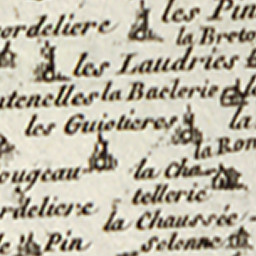 les Pin
cordeliere
la Breto
les Laudries
ntenelles la Baclerie
les Guiotieres la
la Ron
ougeau la Cha-
tellerie
rdeliere
la Chaussée
le Pin Solonne